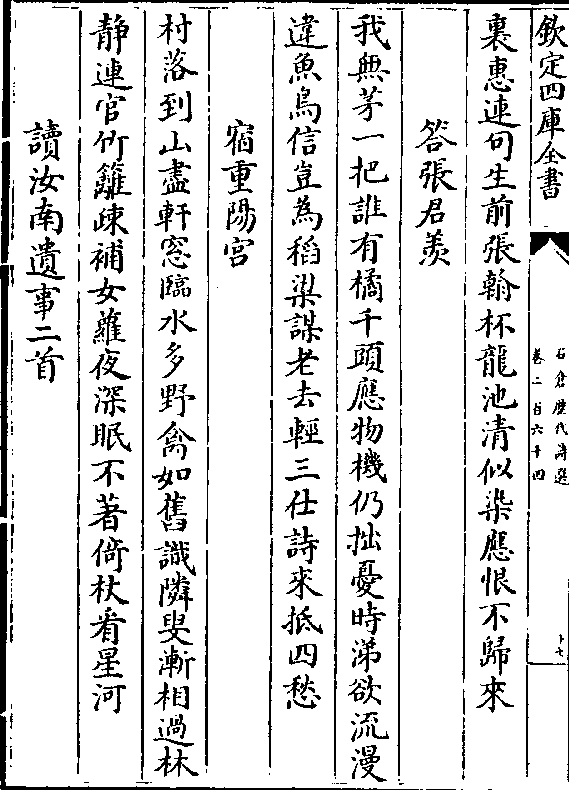 欽定四庫全書
石倉歷代詩選
卷二百六十四
十七
裏惠連句生前張翰杯龍池清似染應恨不歸來
答張君美
我無茅一把誰有橘千頭應物機仍拙憂時涕欲流漫
違魚鳥信豈為稻粱謀老去輕三仕詩來抵四愁
宿重陽宮
村落到山盡軒窓臨水多野禽如舊識隣叟漸相過林
静連官竹籬疎補女蘿夜深眠不著倚杖看星河
讀汝南遺事二首